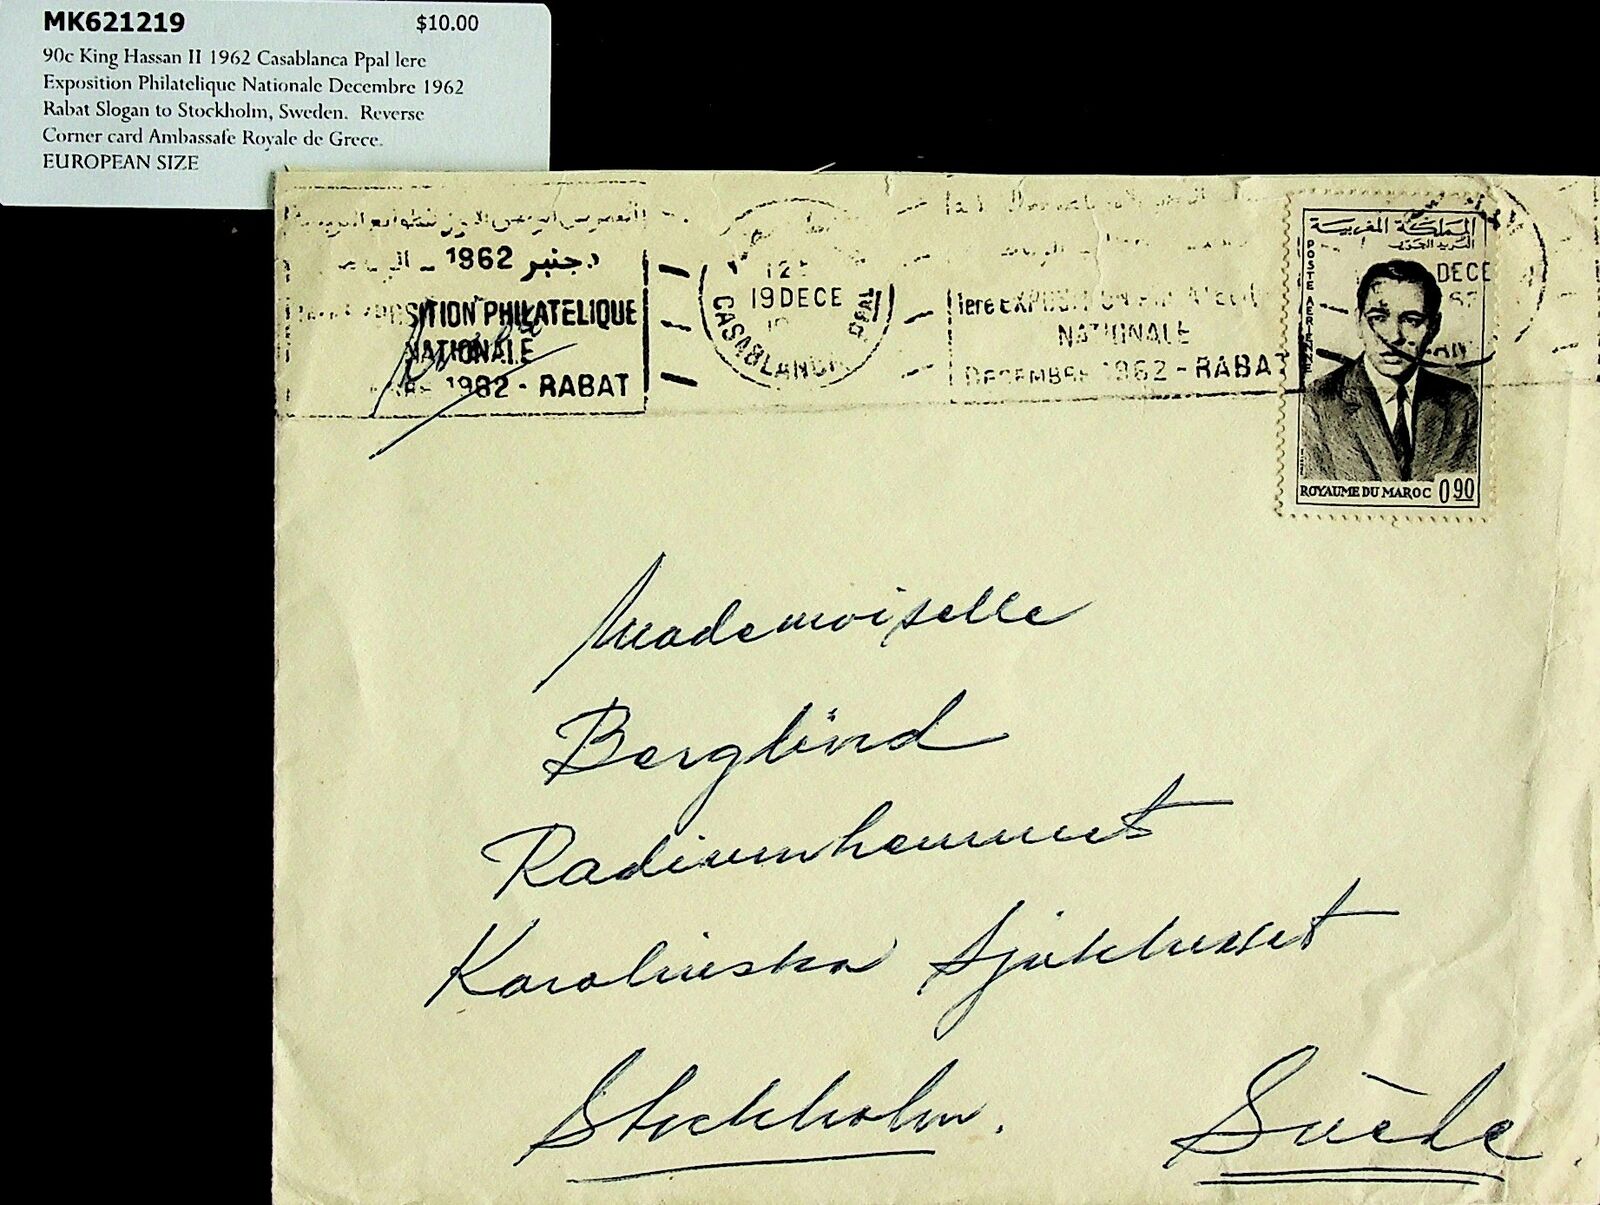 MK621219 $10.00
90c King Hassan II 1962 Casablanca Ppal lere
Exposition Philatelique Nationale Decembre 1962
Rabat Slogan to Stockholm, Sweden. Reverse
Corner card Ambassafe Royale de Grece.
EUROPEAN SIZE
دجنبر 1962 -
EXPOSITION PHILATELIQUE
NATIONALE
1962 - RABAT
19 DECE
CASABLANCA PPAL
1ere EXPOSITION PHILATELIQUE
NATIONALE
DECEMBRE 1962 - RABAT
DECE
المملكة المغربية
البريد الجوي
POSTE AERIENNE
ROYAUME DU MAROC 0.90
Mademoiselle
Berglind
Radiumhemmet
Karolinska Sjukhuset
Stockholm.
Suède